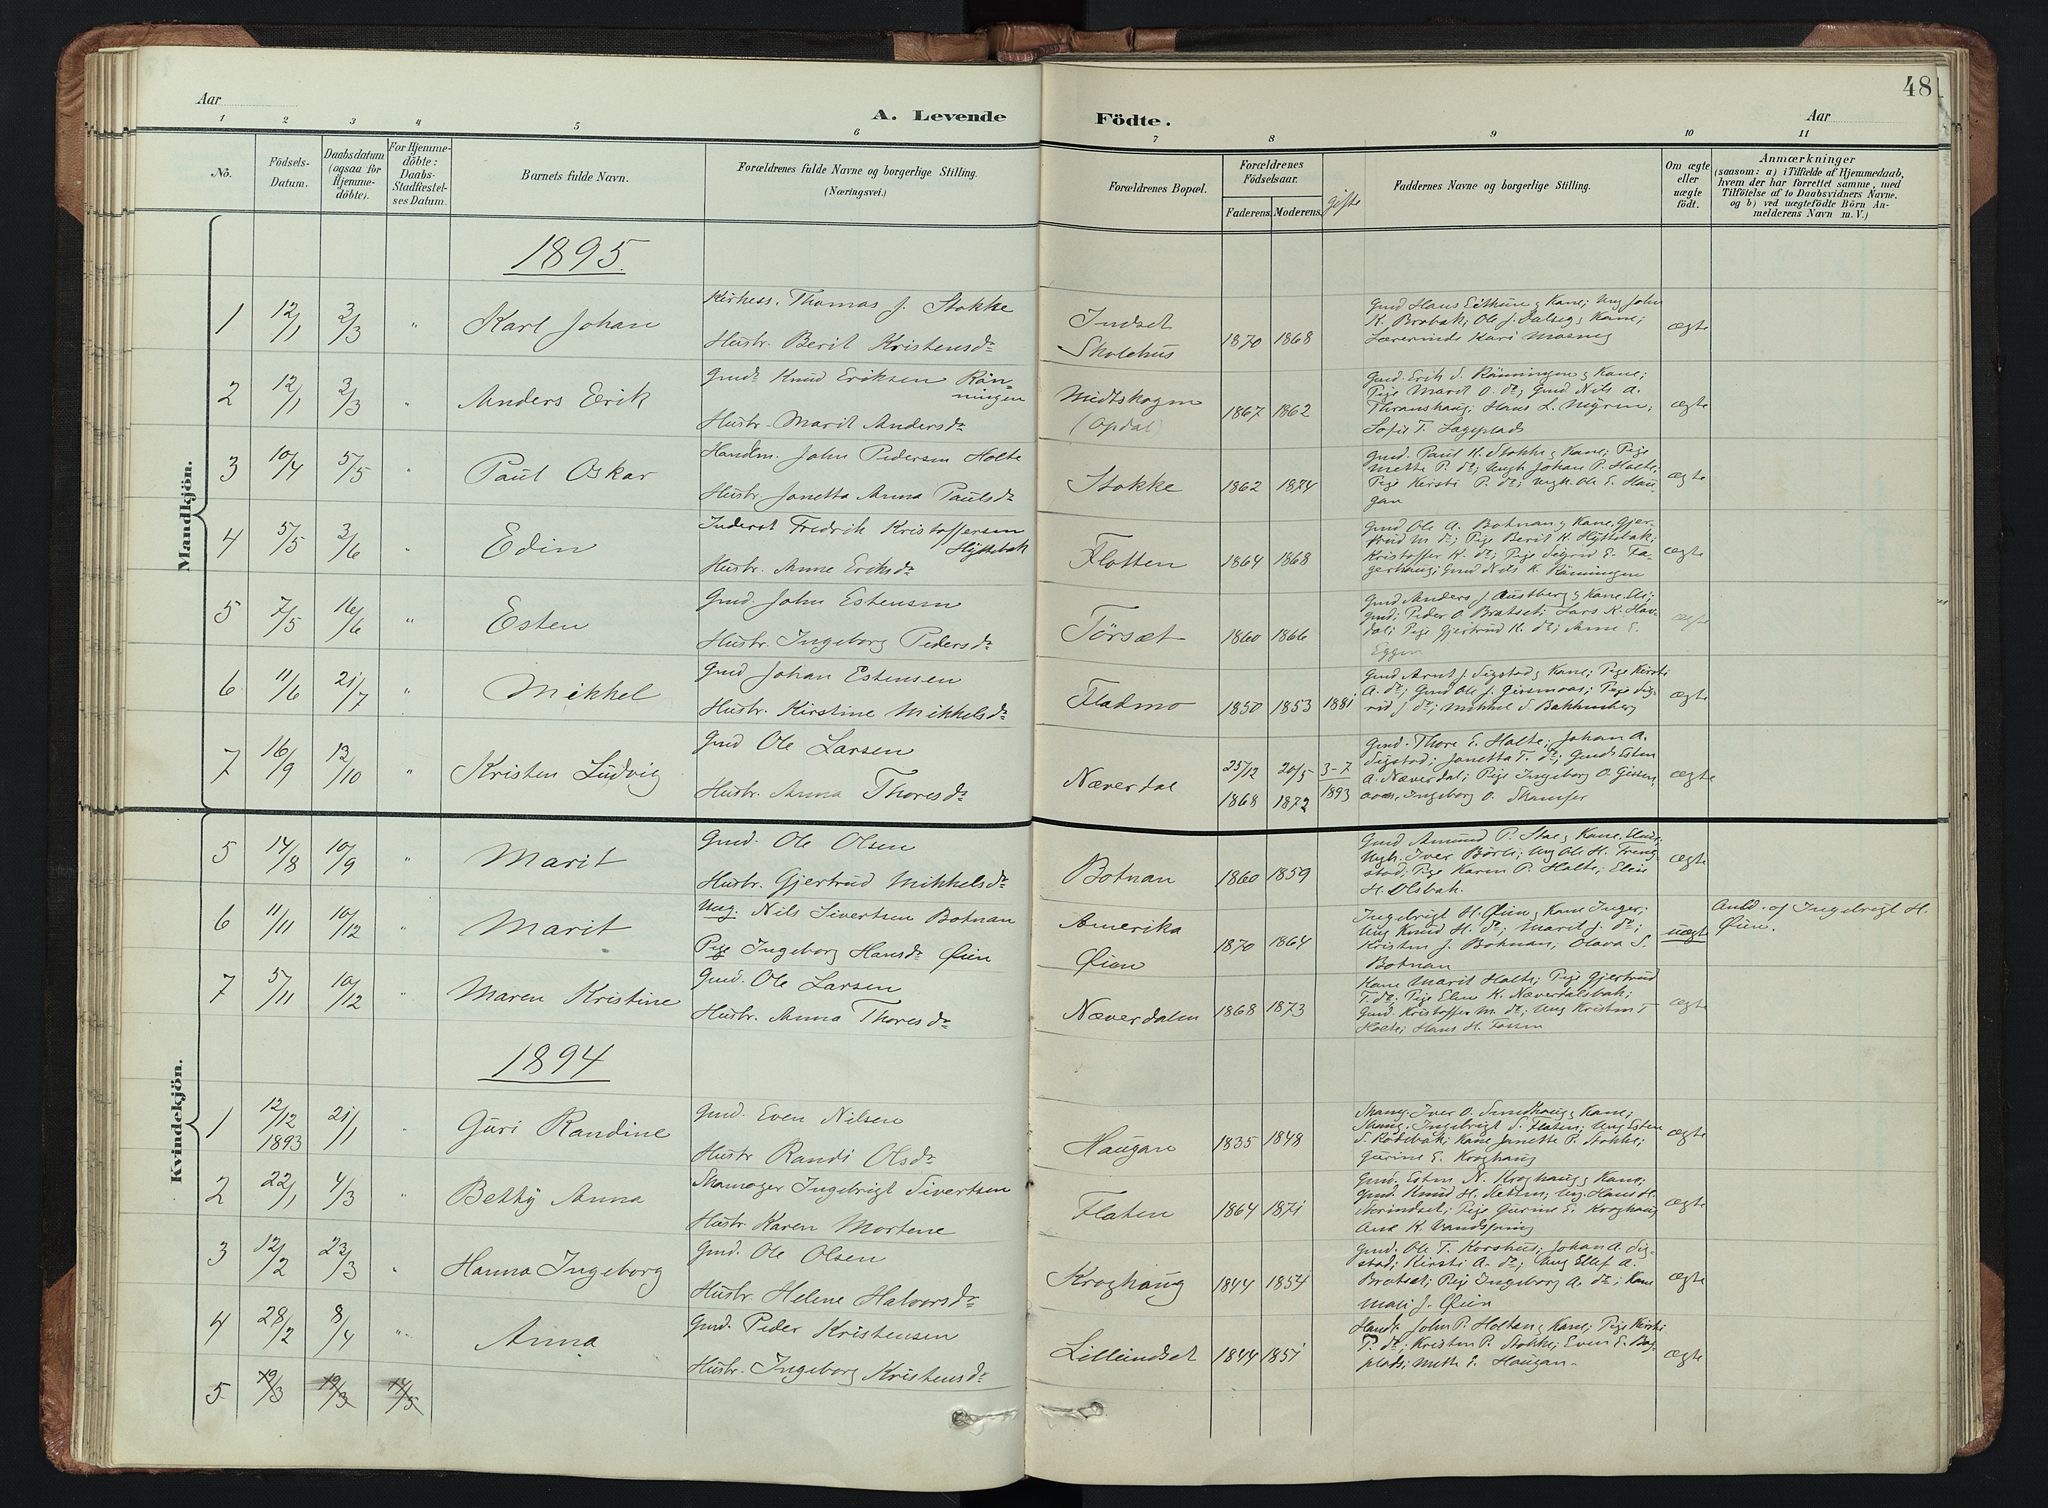 Aar
A. Levende
Födte.
Aar
48
1 2 3 4 5 6 7 8 9 10 11
Nô.
Födsels-
Datum.
Daabsdatum
(ogsaa for
Hjemme-
döbte).
For Hjemme-
döbte:
Daabs-
Stadfæstel-
ses Datum.
Barnets fulde Navn.
Forældrenes fulde Navne og borgerlige Stilling.
(Næringsvei.)
Forældrenes Bopæl.
Forældrenes
Födselsaar.
Faderens. Moderens.
gifte
Faddernes Navne og borgerlige Stilling.
Om ægte
eller
uægte
födt.
Anmærkninger
(saasom: a) i Tilfælde af Hjemmedaab,
hvem der har forrettet samme, med
Tilföielse af to Daabsvidners Navne.
og b) ved uægtefödte Börn An-
melderens Navn m. V.)
Mandkjön.
1895.
1 12/1 3/3 " Karl Johan
Kirkess. Thomas J. Stokke
Hustr. Berit Kristensdr
Indset
Skolehus
1870 1868
K. Brabak; Ole J. Kane;
Lærerinde Kari
ægte
2 12/1 3/3 " Anders Erik
Gmdr Knud Eriksen Rön-
ningen
Hustr. Marit Andersdr
Midtskogen
(Opdal)
1867 1862
Gmd. Erik S. Rönningen & Kane;
Pige Marit O. dr; Gmd Nils A.
Thranshaug; Hans L. Myren;
Sofie T. Sageplads
ægte
3 10/4 5/5 " Paul Oskar
Handm. John Pedersen Holte
Hustr. Janetta Anna Paulsdr
Stokke
1862 1874
Gmd. Paul K. Stokke & Kane; Pige
Mette P. dr; Ungk Johan P. Holte;
Pige Kirsti P. dr; Ungk. Ole E. Hau-
gan
ægte
4 5/5 3/6 " Edin
Inderst Fredrik Kristoffersen
Hyttebak
Hustr. Anne Eriksdr
Flotten
1864 1868
Gmd Ole A. Botnan & Kane; Gjer-
trud M. dr; Pige Berit K. Hyttebak;
Kristoffer K. dr; Pige Sigrid E. Fa-
gerhaug; Gmd Nils K. Rönningen
ægte
5 7/5 16/6 " Esten
Gmd. John Estensen
Hustr. Ingeborg Pedersdr
Törsæt
1860 1866
Gmd Anders J. Austberg & Kane Eli;
Gmd; Peder O. Bratset; Lars K. Hav-
dal; Pige Gjertrud K. dr; Anne E.
Eggen
ægte
6 11/6 21/7 " Mikkel
Gmd Johan Estensen
Hustr. Kirstine Mikkelsdr
Fladmo
1850 1853 1881
Gmd Arnt J. Sigstad & Kane; Pige Kirsti
A. dr; Gmd Ole J. Gissmoas; Pige Sig-
rid J. dr; Mikkel S. Bakkenberg
ægte
7 16/9 13/10 " Kristen Ludvig
Gmd Ole Larsen
Hustr. Anna Thoresdr
Næverdal
25/12 20/5 3-7
1868 1872 1893
Gmd. Thore E. Holte; Johan A.
Sigstad; Janetta T. dr; Gmds Esten
A. Næverdal; Pige Ingeborg O. Gissen-
aas, Ingeborg O. Skamfer
ægte
Kvindekjön.
5 14/8 10/9 " Marit
Gmd. Ole Olsen
Hustr. Gjertrud Mikkelsdr
Botnan
1860 1859
Gmd Amund P. Stae & Kane;
Ungk. Iver Börli; Ung Ole H. Tring-
stad; Pige Karen P. Holte; Elen
H. Olsbak.
ægte
6 11/11 10/12 " Marit
Ung. Nils Sivertsen Botnan
Pige Ingeborg Hansdr Øien
Amerika
Øien
1870 1864
Ingebrigt H. Øien & Kane Inger;
Ung Knud H. dr; Marit J. dr;
Kristen J. Botnan; Olava S.
Botnan
uægt
Anld. af Ingebrigt H.
Øien.
7 5/11 10/12 " Maren Kristine
Gmd. Ole Larsen
Hustr. Anna Thoresdr
Næverdalen
1868 1873
Kane Marit Holte; Pige Gjertrud
T. dr; Pige Elen K. Næverdalsbak;
Gmd. Kristoffer M. dr; Ung Kristen T.
Holte; Hans H. Tossen
ægte
1894
1 12/12 1893 21/1 " Guri Randine
Gmd. Even Nilsen
Hustr Randi Olsdr
Haugan
1835 1848
Skomg. Iver O. Sundhaug & Kane;
Skomg. Ingebrigt S. Flaten; Ung Esten
S. Rödsbak; Kane Janette P. Stokke;
Gurine E. Kroghaug
ægte
2 22/1 4/3 " Betty Anna
Skomager Ingebrigt Sivertsen
Hustr. Karen Mortene
Flaten
1864 1871
Gmd. Esten N. Kroghaug & Kane;
Gmd. Knud H. Sletten; Ug. Hans H.
Skrindset; Pige Gurine E. Kroghaug
Ane K. Vandspring
ægte
3 12/2 23/3 " Hanna Ingeborg
Gmd. Ole Olsen
Hustr. Helene Halvorsdr
Kroghaug
1844 1854
Gmd. Ole T. Korshus; Johan A. Sig-
stad; Kirsti A. dr; Ung Ellef A.
Bratset; Pige Ingeborg A. dr; Kane
Mali J. Øien
ægte
4 28/2 8/4 " Anna
Gmd. Peder Kristensen
Hustr. Ingeborg Kristensdr
Lilleindset
1844 1851
Handl. John P. Holten & Kane; Pige Kirsti
P. dr; Kristen P. Stokke; Even E. Bog-
plads; Mette E. Haugan.
ægte
5 19/3 19/3 14/5